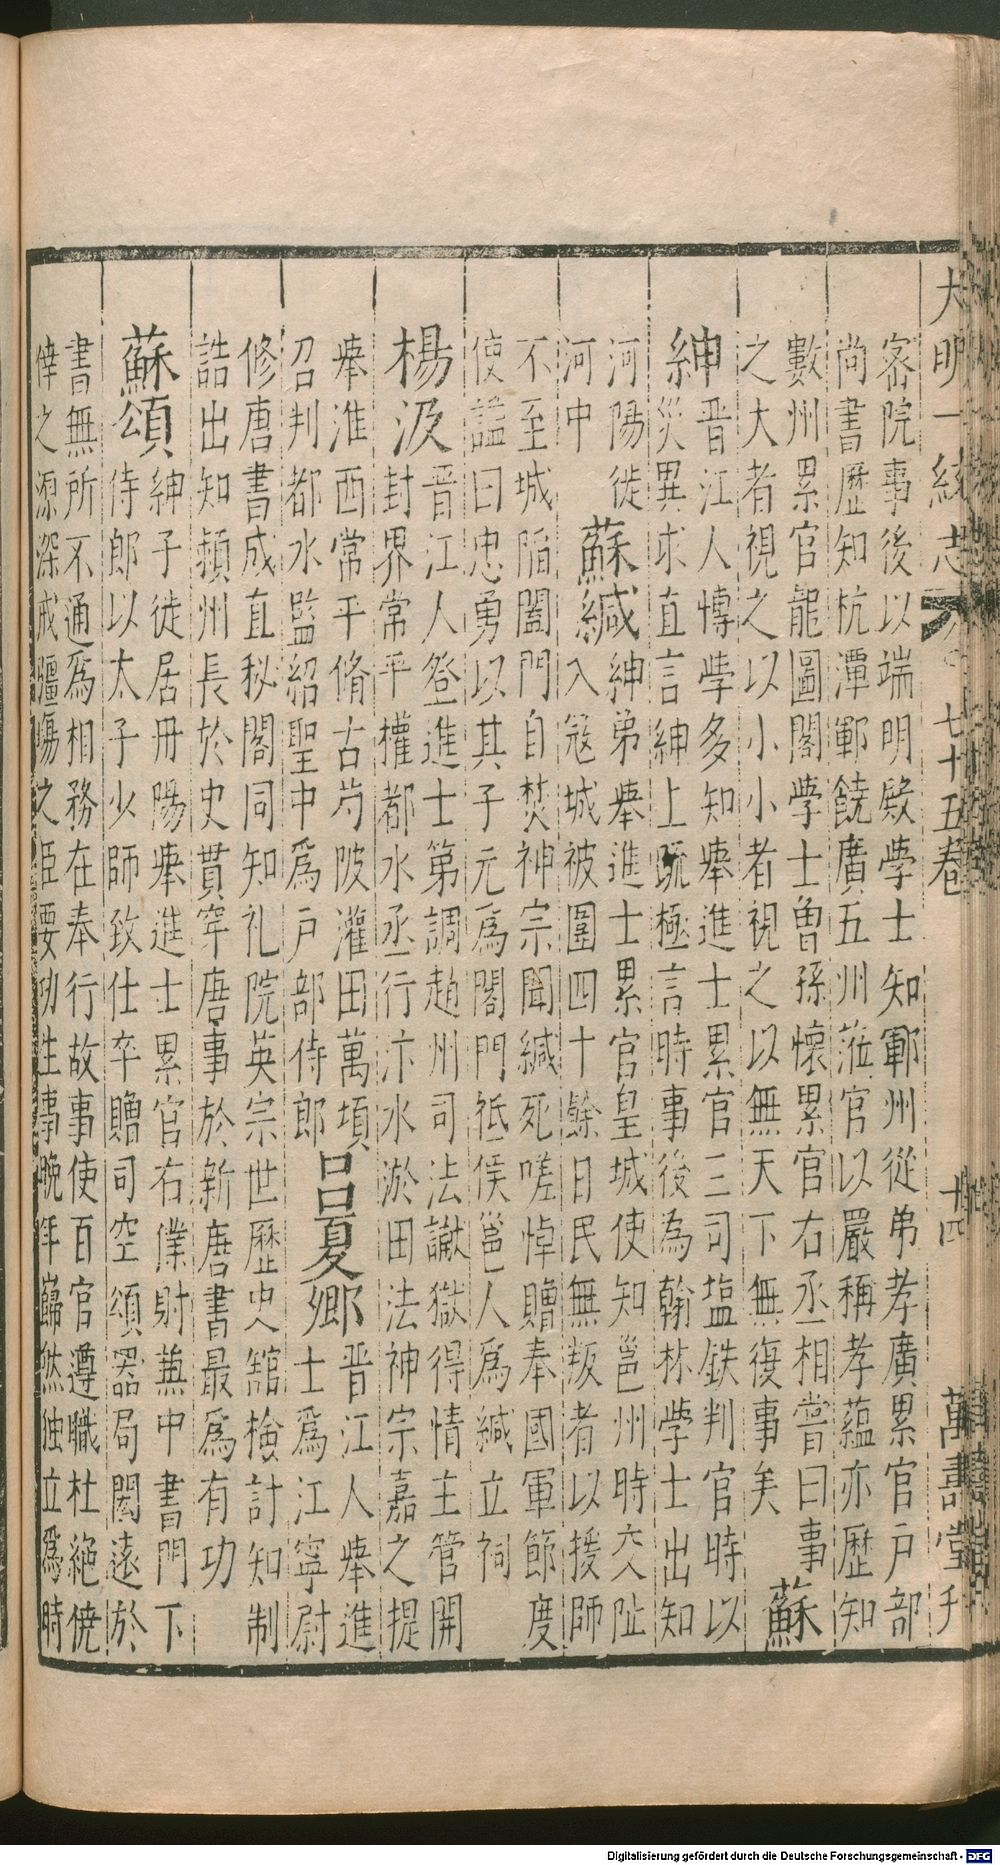 大明一統志 七十五卷 十四 萬壽堂刋
密院事後以端明殿學士知鄆州從弟孝廣累官戶部
尚書歷知杭潭鄆饒廣五州蒞官以嚴稱孝蘊亦歷知
數州累官龍圖閣學士曾孫懷累官右丞相嘗曰事
之大者視之以小小者視之以無天下無復事矣 蘇
紳 晋江人慱學多知舉進士累官三司塩鉄判官時以
災異求直言紳上疏極言時事後為翰林學士出知
河陽徙
河中
蘇緘 紳弟舉進士累官皇城使知邕州時交阯
入冦城被圍四十餘日民無叛者以援師
不至城陷闔門自焚神宗聞緘死嗟悼贈奉國軍節度
使諡曰忠勇以其子元爲閣門祗候邕人爲緘立祠
楊汲 晋江人登進士第調趙州司法讞獄得情主管開
封界常平權都水丞行汴水淤田法神宗嘉之提
舉淮西常平脩古芍陂灌田萬頃
召判都水監紹聖中爲戶部侍郎
呂夏卿 晋江人舉進
士爲江寧尉
修唐書成直秘閣同知礼院英宗世歷史舘檢討知制
誥出知頴州長於史貫穿唐事於新唐書最爲有功
蘇頌 紳子徒居丹陽舉進士累官右僕射兼中書門下
侍郎以太子少師致仕卒贈司空頌器局閎遠於
書無所不通爲相務在奉行故事使百官遵職杜絶僥
倖之源深戒疆塲之臣要功生事晚年巋然独立爲時
Digitalisierung gefördert durch die Deutsche Forschungsgemeinschaft - DFG